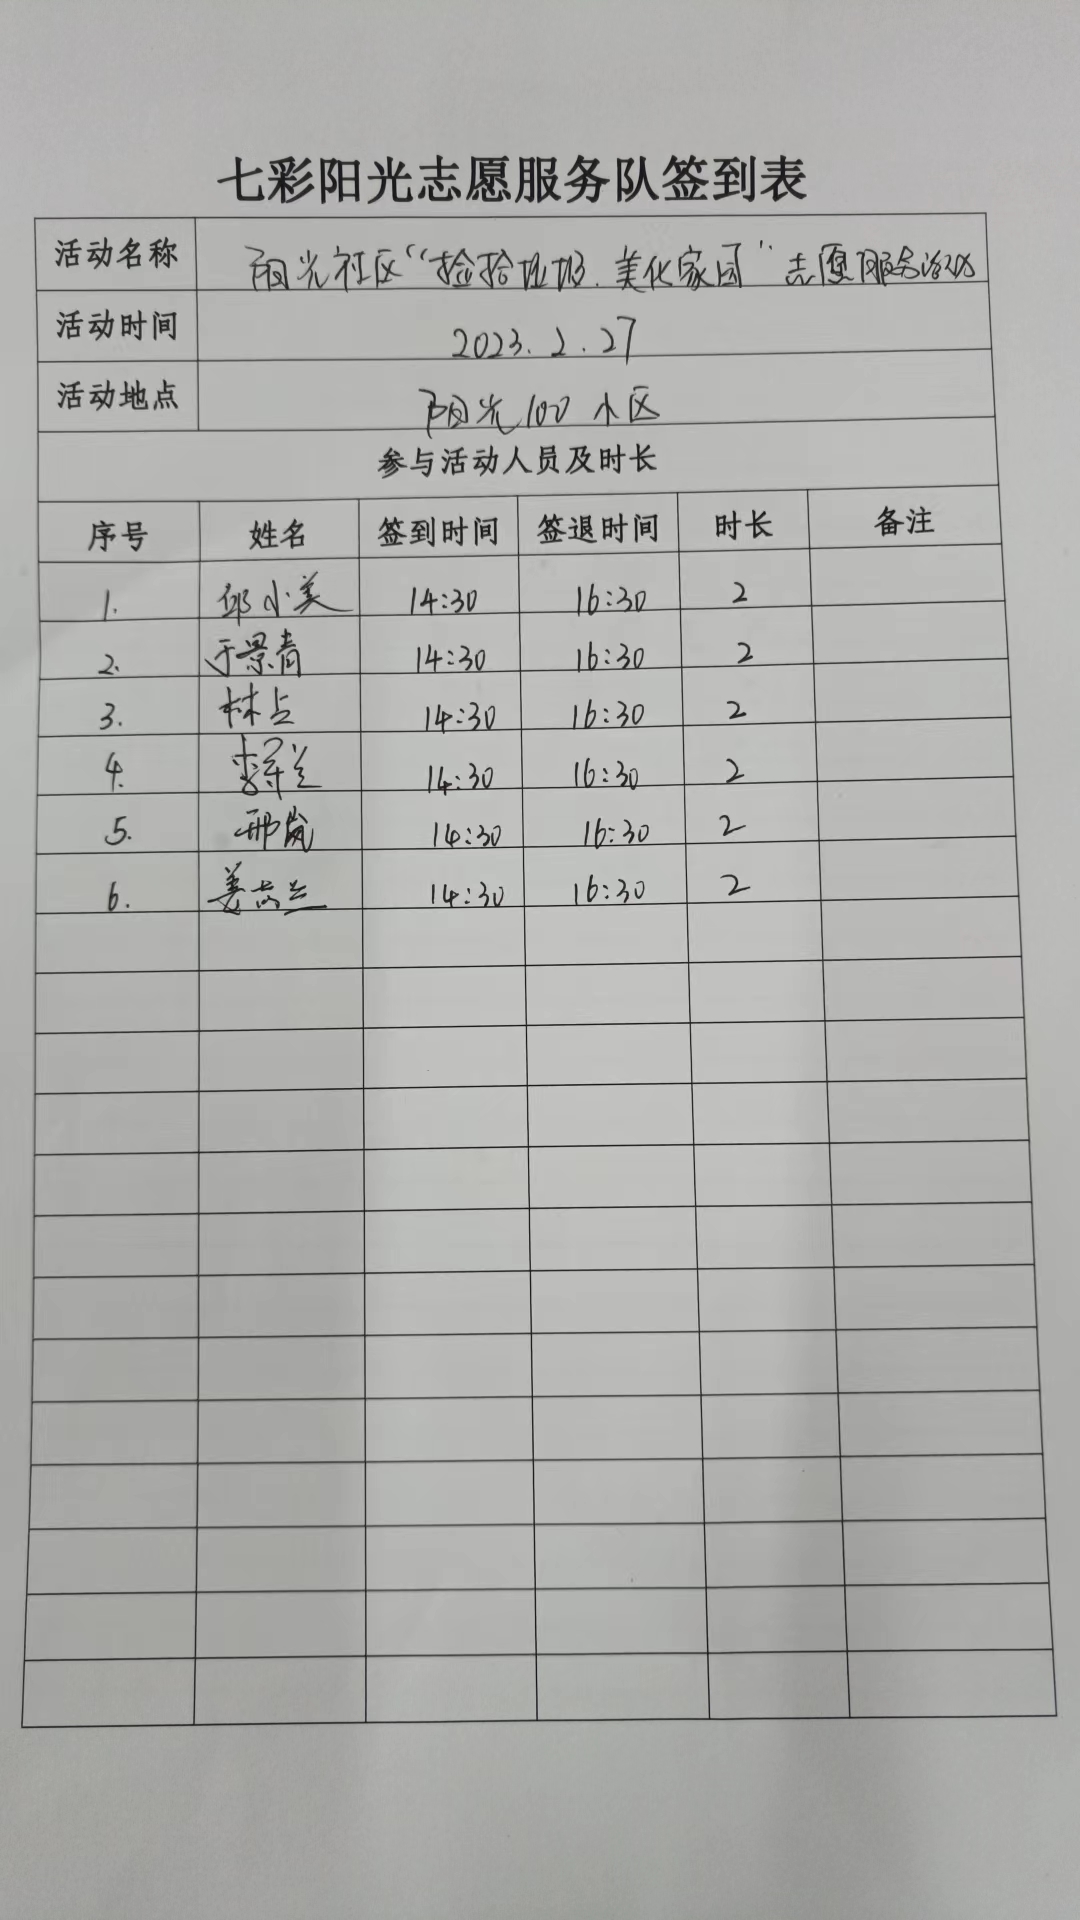 七彩阳光志愿服务队签到表
活动名称 阳光社区“捡拾垃圾、美化家园”志愿服务活动
活动时间 2023.2.27
活动地点 阳光100小区
参与活动人员及时长
序号 姓名 签到时间 签退时间 时长 备注
1. 邱小美 14:30 16:30 2
2. 于景青 14:30 16:30 2
3. 林占 14:30 16:30 2
4. 14:30 16:30 2
5. 邢岚 14:30 16:30 2
6. 姜 14:30 16:30 2